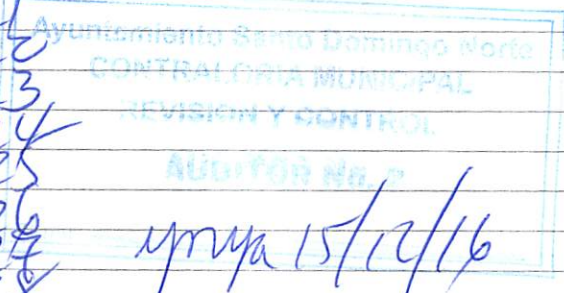 Ayuntamiento Santo Domingo Norte
CONTRALORIA MUNICIPAL
REVISION Y CONTROL
AUDITOR No.
3
4
5
6
15/12/16